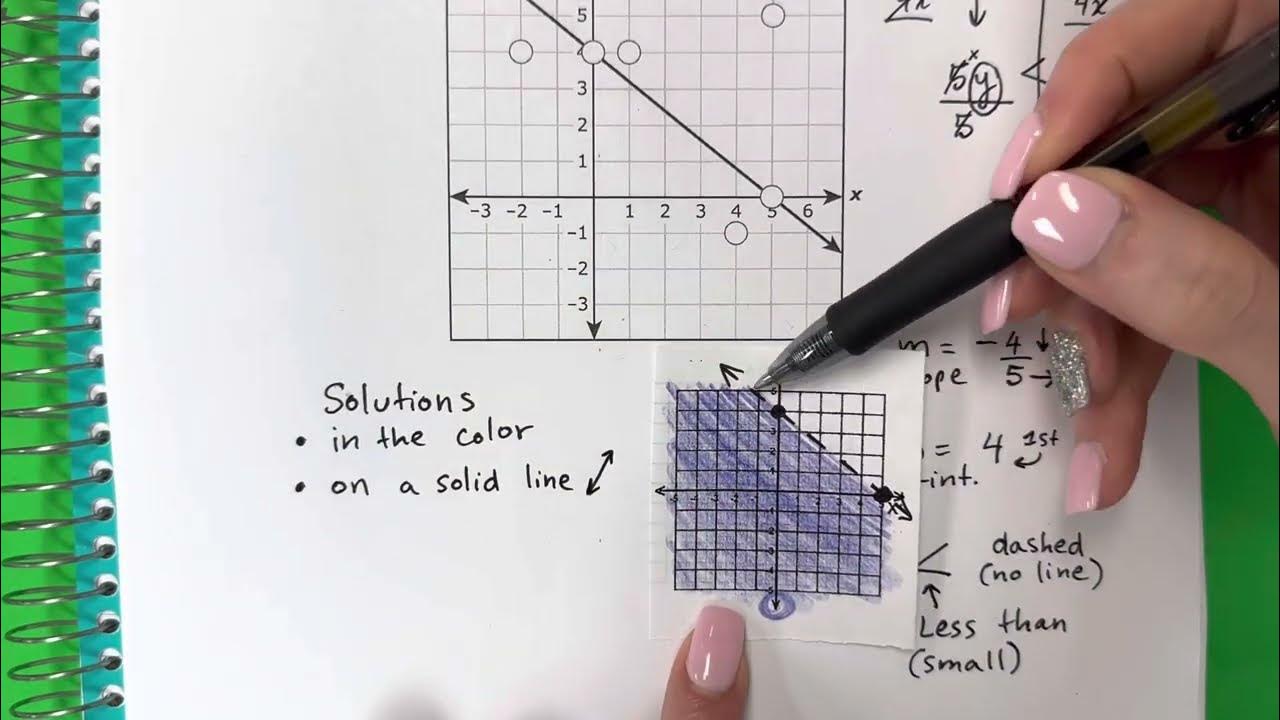 5
3
2
1
-3 -2 -1 1 2 3 4 5 6 x
-1
-2
-3
4x
5y
5
m = -4
5
Solutions
• in the color
• on a solid line
= 4 1st
-int.
dashed
(no line)
Less than
(small)